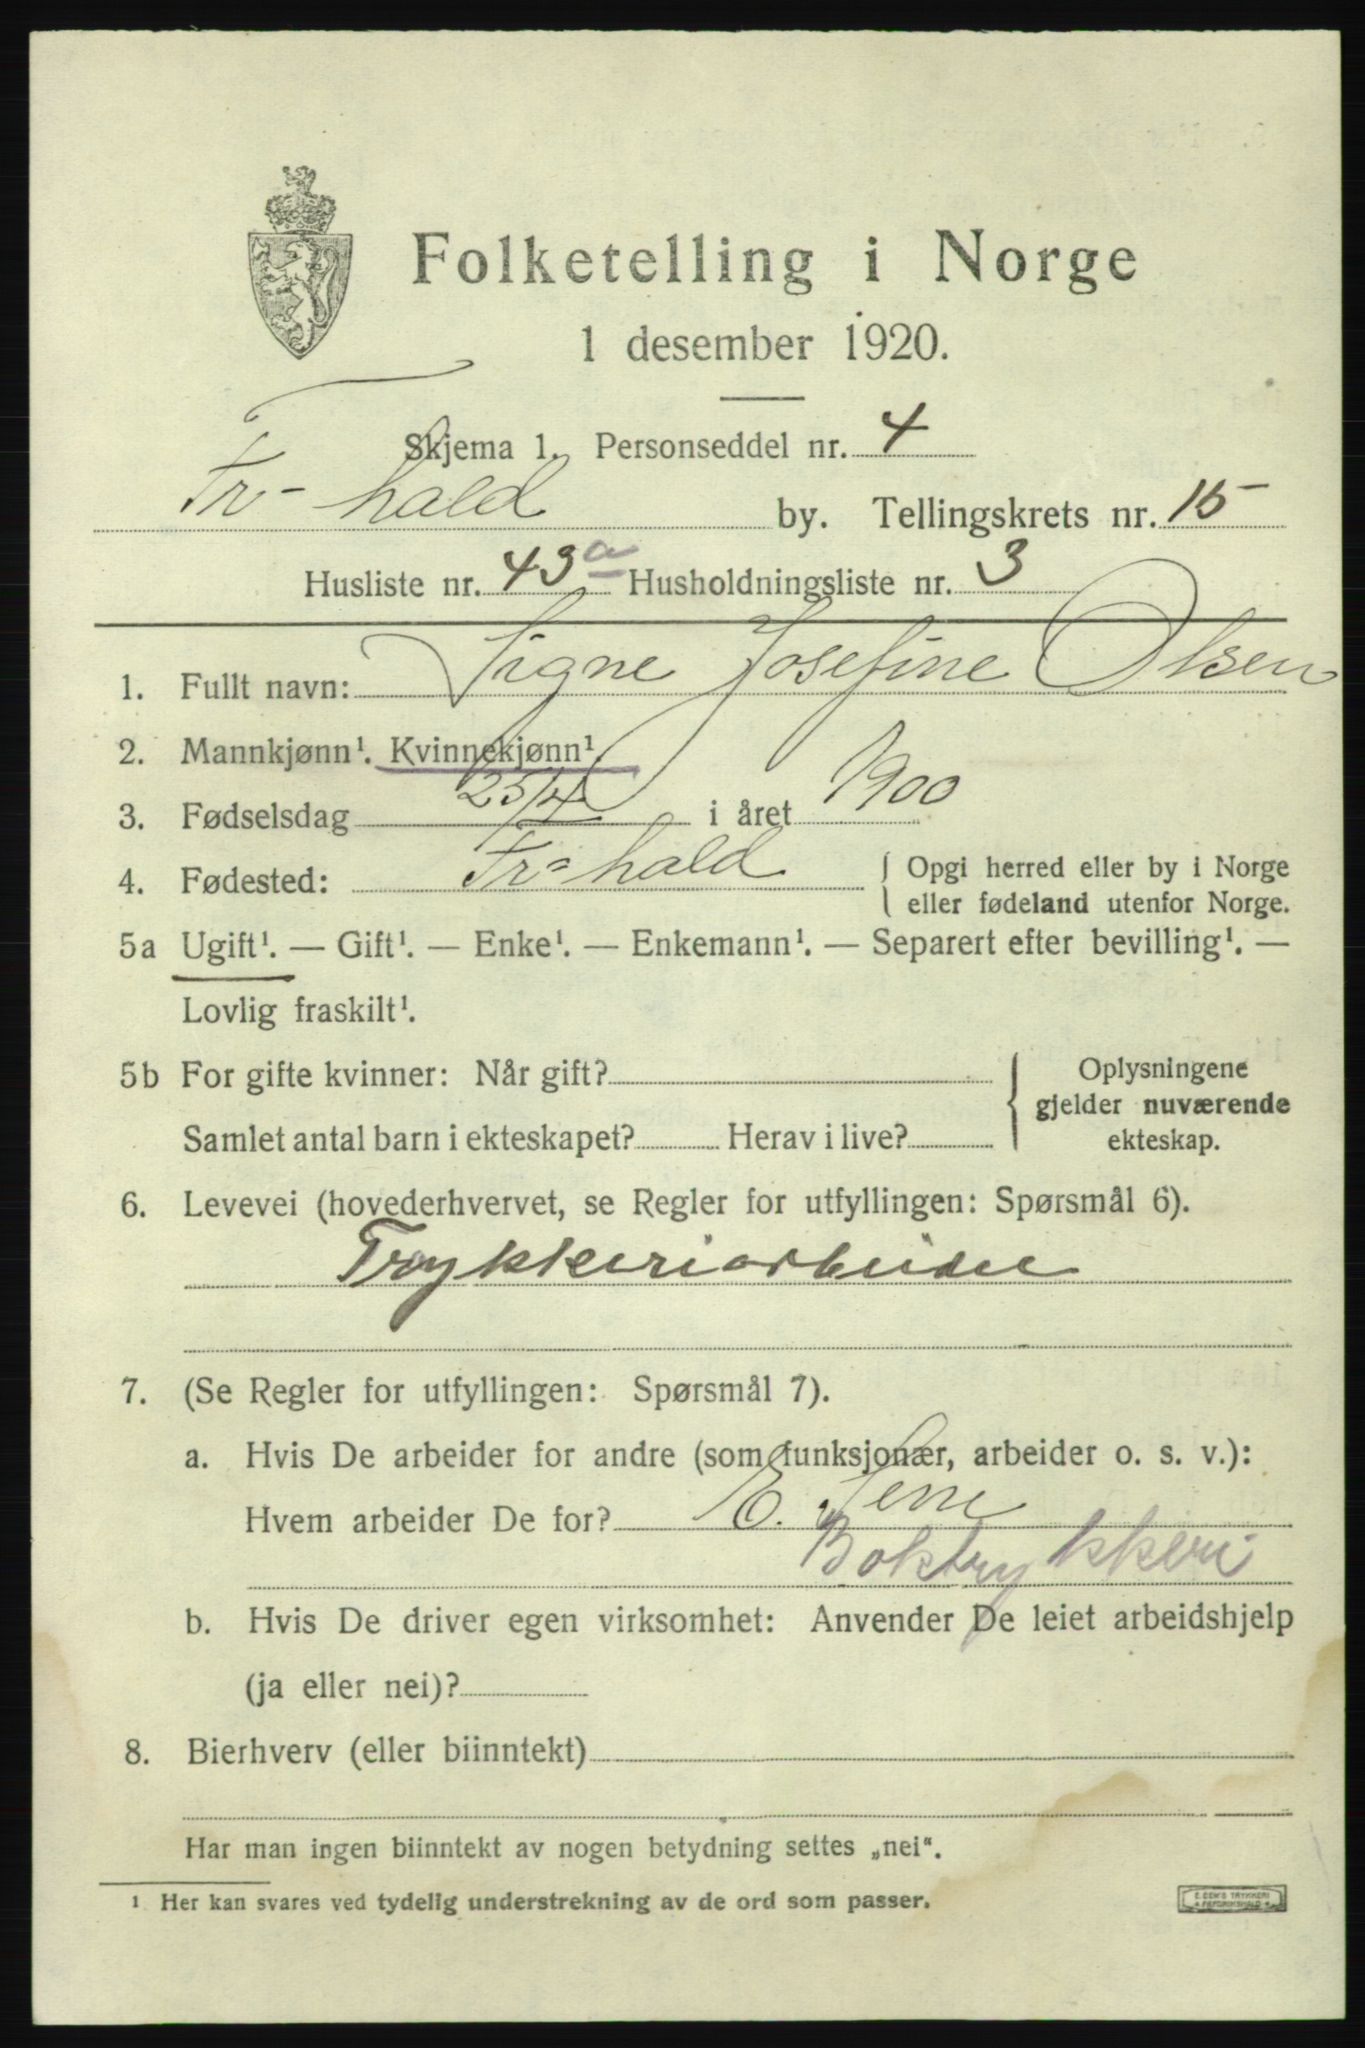 Folketelling i Norge
1 desember 1920.
Skjema 1. Personseddel nr. 4
Fr-hald by. Tellingskrets nr. 15
Husliste nr. 43a Husholdningsliste nr. 3
1. Fullt navn: Signe Josefine Olsen
2. Mannkjønn¹. Kvinnekjønn¹.
3. Fødselsdag 25/4 i året 1900
4. Fødested: Fr-hald { Opgi herred eller by i Norge
eller fødeland utenfor Norge.
5a Ugift¹. — Gift¹. — Enke¹. — Enkemann¹. — Separert efter bevilling¹. —
Lovlig fraskilt¹.
5b For gifte kvinner: Når gift? { Oplysningene
gjelder nuværende
Samlet antal barn i ekteskapet? Herav i live? ekteskap.
6. Levevei (hovederhvervet, se Regler for utfyllingen: Spørsmål 6).
Trykkeriarbeider
7. (Se Regler for utfyllingen: Spørsmål 7).
a. Hvis De arbeider for andre (som funksjonær, arbeider o. s. v.):
Hvem arbeider De for? E. Sem
Boktrykkeri
b. Hvis De driver egen virksomhet: Anvender De leiet arbeidshjelp
(ja eller nei)?
8. Bierhverv (eller biinntekt)
Har man ingen biinntekt av nogen betydning settes „nei“.
¹ Her kan svares ved tydelig understrekning av de ord som passer.
E. SEM'S TRYKKERI
FREDRIKSHALD